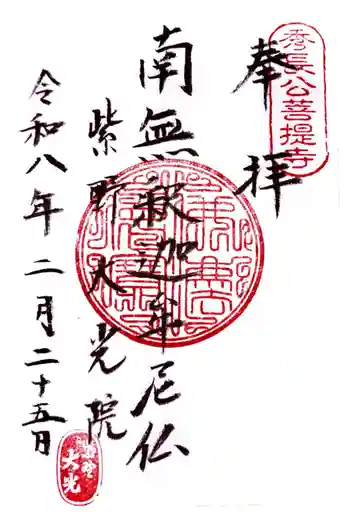 秀長公菩提寺
奉拝
南無釈迦牟尼仏
紫野大光院
令和八年二月二十五日
大光